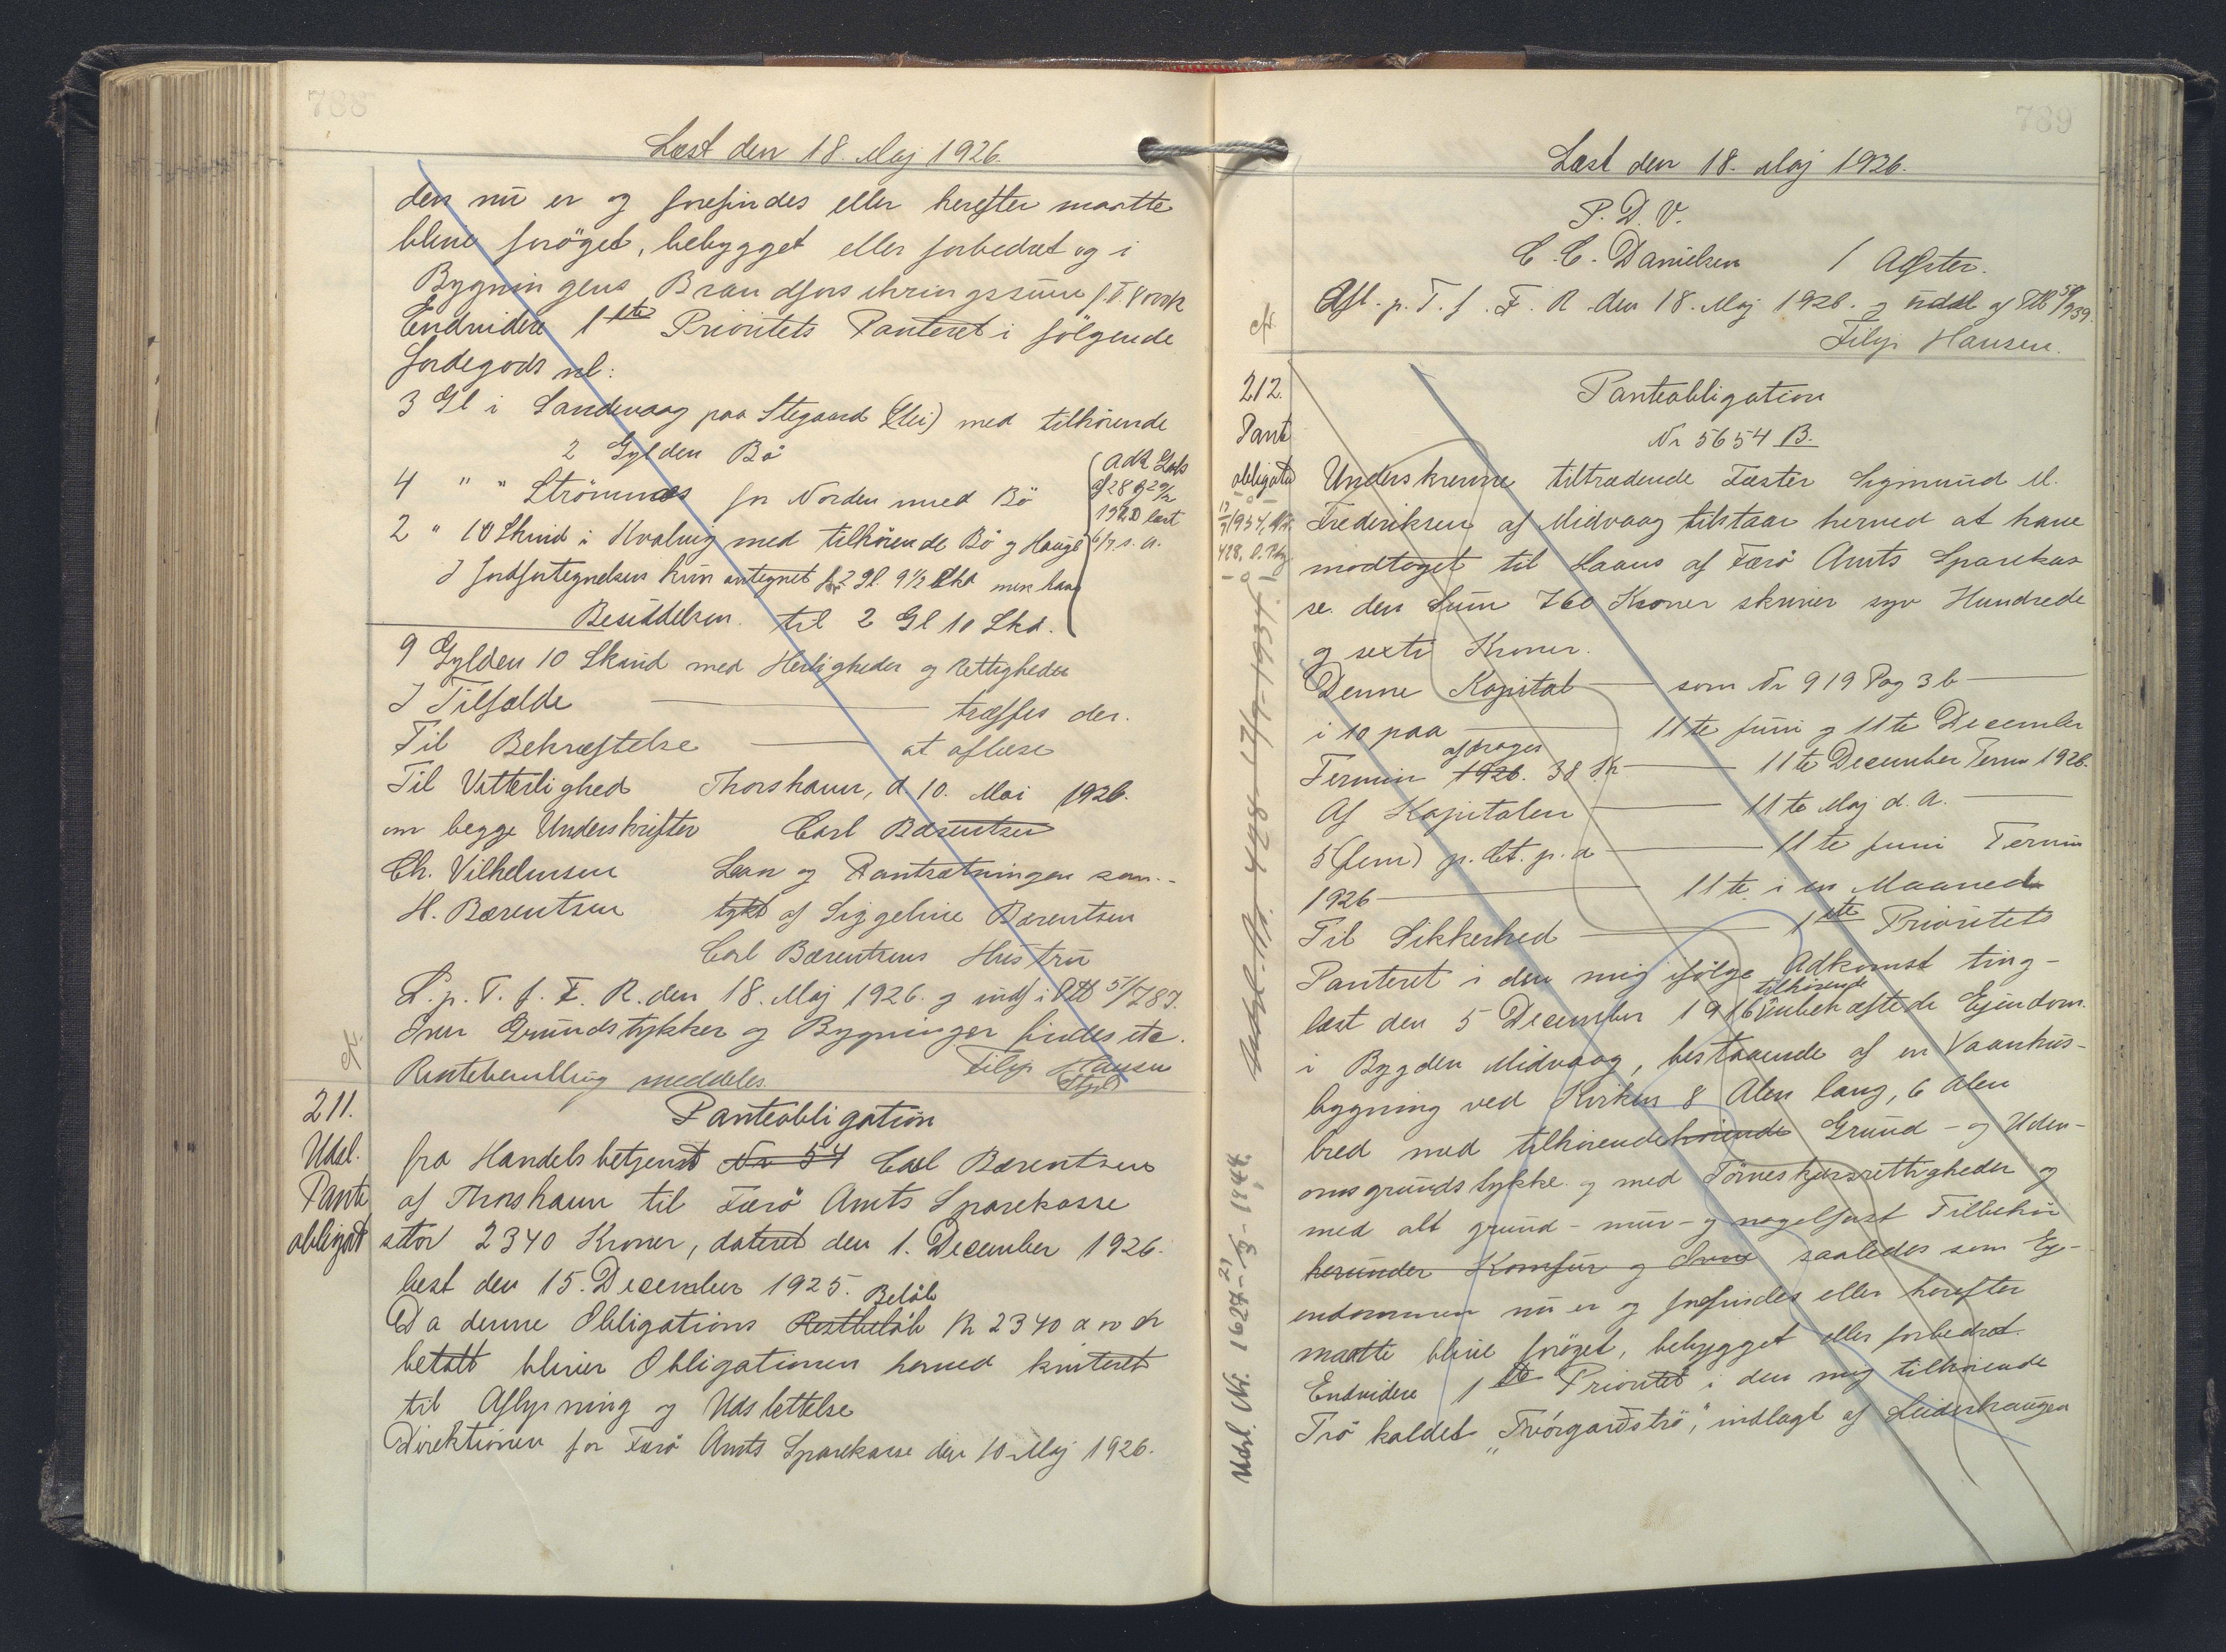 788
Læst den 18. Maj 1926.
den nu er og forefindes eller herefter maatte
blive forøget, bebygget eller forbedret og i
Bygningens Brandforsikringssum
Endvidere 1ste Prioritets Panteret i følgende
Jordegods nl:
3 Gl i Sandevaag paa Stegaard (Lei) med tilhørende
2 Gylden Bø
4 " " Strömnæs for Norden med Bø
2 " 10 Skind i Kvalvig med tilhørende Bø og Hauge
I Jordfortegnelsen kun antegnet for 2 Gl. 9 1/2 Skd men hans
Besiddelsen til 2 Gl 10 Skd.
(Adk Løbs
af 28 og 29/2
1920 læst
6/7 s. a.
9 Gylden 10 Skind med Herligheder og Rettigheder
I Tilfælde — træffes der.
Til Bekræftelse — at aflæse
Til Vitterlighed Thorshavn, d. 10. Mai 1926.
om begge Underskrifter Carl Bærentsen
Ch. Vilhelmsen Laan og Pantsætningen sam-
H. Bærentsen tykt af Siggeline Bærentsen
Carl Bærentsens Hustru
L. p. T. f. F. R. den 18. Maj 1926. og indf i Ptb 51/787.
Over Grundstykker og Bygninger findes etc.
Rentebevilling meddeles Filip Hansen
cfr.
211.
Udsl.
Pante
obligat
Panteobligation
fra Handelsbetjent No 54 Carl Bærentsen
af Thorshavn til Færø Amts Sparekasse
stor 2340 Kroner, dateret den 1. December 1926.
læst den 15. December 1925. Beløb
Da denne Obligations Restbeløb Kr 2340 er
betalt bliver Obligationen herved kvitteret
til Aflysning og Udslettelse
Direktionen for Færø Amts Sparekasse den 10 Maj 1926.
789
Læst den 18. Maj 1926.
P. D. V.
C. C. Danielsen / Agster.
Afl. p. T. f. F. R. den 18. Maj 1926. og udsl af Ptb 50/939.
Filip Hansen.
cfr.
212.
Pant
obligatio
Panteobligation
Nr 5654 B.
Underskrevne tiltrædende Fæster Sigmund M.
Frederiksen af Midvaag tilstaar herved at have
modtaget til Laans af Færø Amts Sparekas
se den Sum 760 Kroner skriver syv Hundrede
og sexti Kroner.
Denne Kapital — som Nr 919 Pag 3 b —
i 10 paa — 11te Juni og 11te December
afdrages
Termin 1926. 38 Kr — 11te December Term 1926.
Af Kapitalen — 11te Maj d. A. —
5 (fem) p. Ct. p. a — 11te Juni Termin
1926 — 11te i en Maaned
Til Sikkerhed — 1ste Prioritets
Panteret i den mig ifølge Adkomst ting-
tilhørende
læst den 5 December 1916 ubehæftede Ejendom
i Bygden Midvaag, bestaaende af en Vaanhus-
bygning ved Kirken 8 Alen lang, 6 Alen
bred med tilhørende hørende Grund- og Uden-
omsgrundstykke og med Tørneskjærsrettigheder og
med alt grund- mur- og nagelfast Tilbehør
herunder Komfur og Ovne saaledes som Ej-
endommen nu er og forefindes eller herefter
maatte blive forøget, bebygget eller forbedret.
Endvidere 1ste Prioritet i den mig tilhørende
Trø kaldet "Tvørgardstrø", indlagt af Leidarhaugen
Udsl. Nr. 1627-21/8-1974